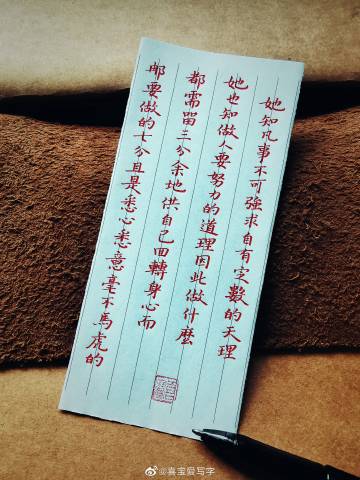 她知凡事不可強求自有定數的天理
她也知做人要努力的道理因此做什麼
都需留三分余地供自己回轉身心而
那要做的七分且是悉心悉意毫不馬虎的
@喜宝爱写字